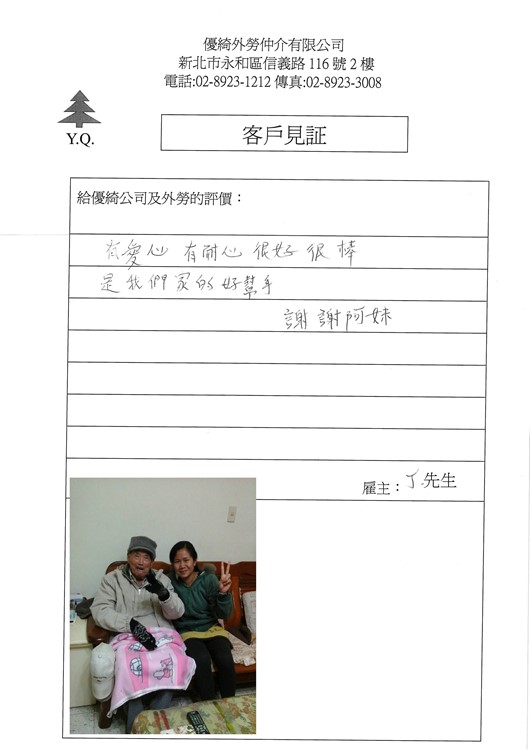 優綺外勞仲介有限公司
新北市永和區信義路 116 號 2 樓
電話:02-8923-1212 傳真:02-8923-3008
Y.Q.
客戶見証
給優綺公司及外勞的評價：
有愛心 有耐心 很好 很棒
是我們家的好幫手
謝謝阿妹
雇主：丁.先生